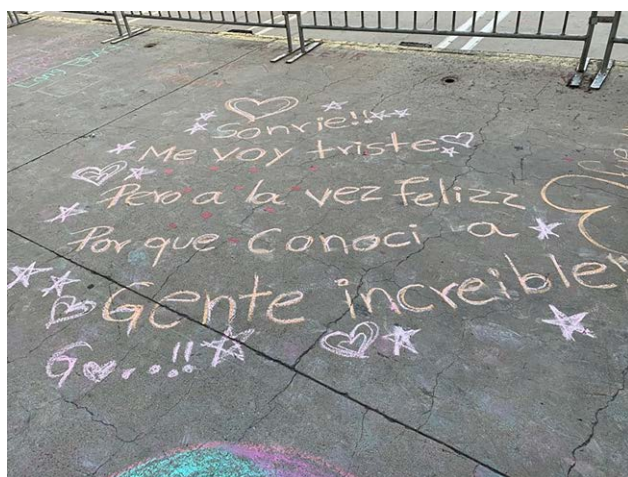 Sonrie!!
Me voy triste
Pero a la vez felizz
Por que conoci a
Gente increible